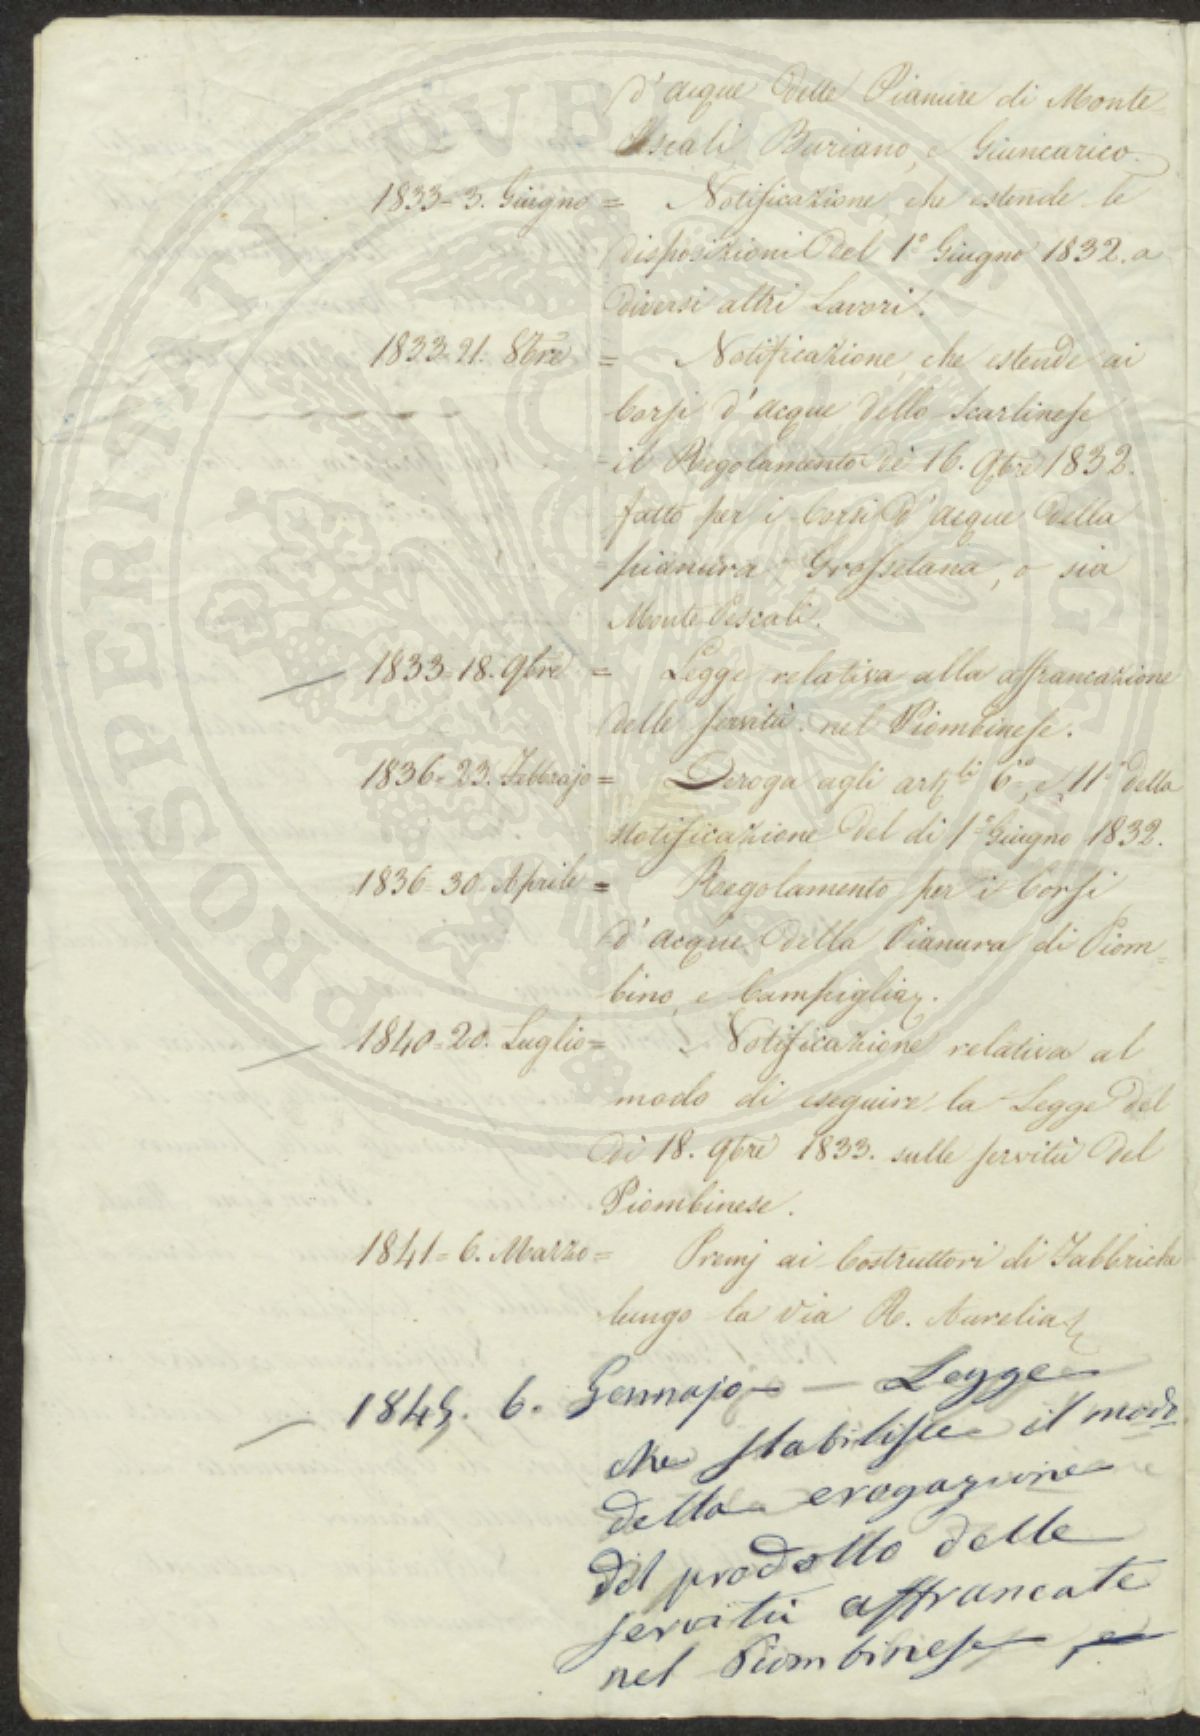 d'acque delle Pianure di Monte=
Pescali, Buriano, e Giuncarico.
1833=3. Giugno = Notificazione che estende le
disposizioni del 1° Giugno 1832. a
diversi altri Lavori.
1833=21. 8bre = Notificazione, che estende ai
Corsi d'acque dello Scarlinese
il Regolamento de' 16. 9bre 1832.
fatto per i Corsi d'acque della
pianura Grossetana, o sia
Monte Pescali.
1833=18. 9bre = Legge relativa alla affrancazione
delle servitù nel Piombinese.
1836=23. Febbrajo = Deroga agli artli 6°, e 11° della
Notificazione del dì 1° Giugno 1832.
1836=30. Aprile = Regolamento per i Corsi
d'acque della Pianura di Piom=
bino, e Campiglia.
1840=20. Luglio = Notificazione relativa al
modo di eseguire la Legge del
dì 18. 9bre 1833. sulle servitù del
Piombinese.
1841=6. Marzo = Premj ai Costruttori di Fabbriche
lungo la via R. Aurelia
1845. 6. Gennajo — Legge
che stabilisce il modo
della erogazione
del prodotto delle
servitù affrancate
nel Piombinese
PROSPERITATI PVBLICAE